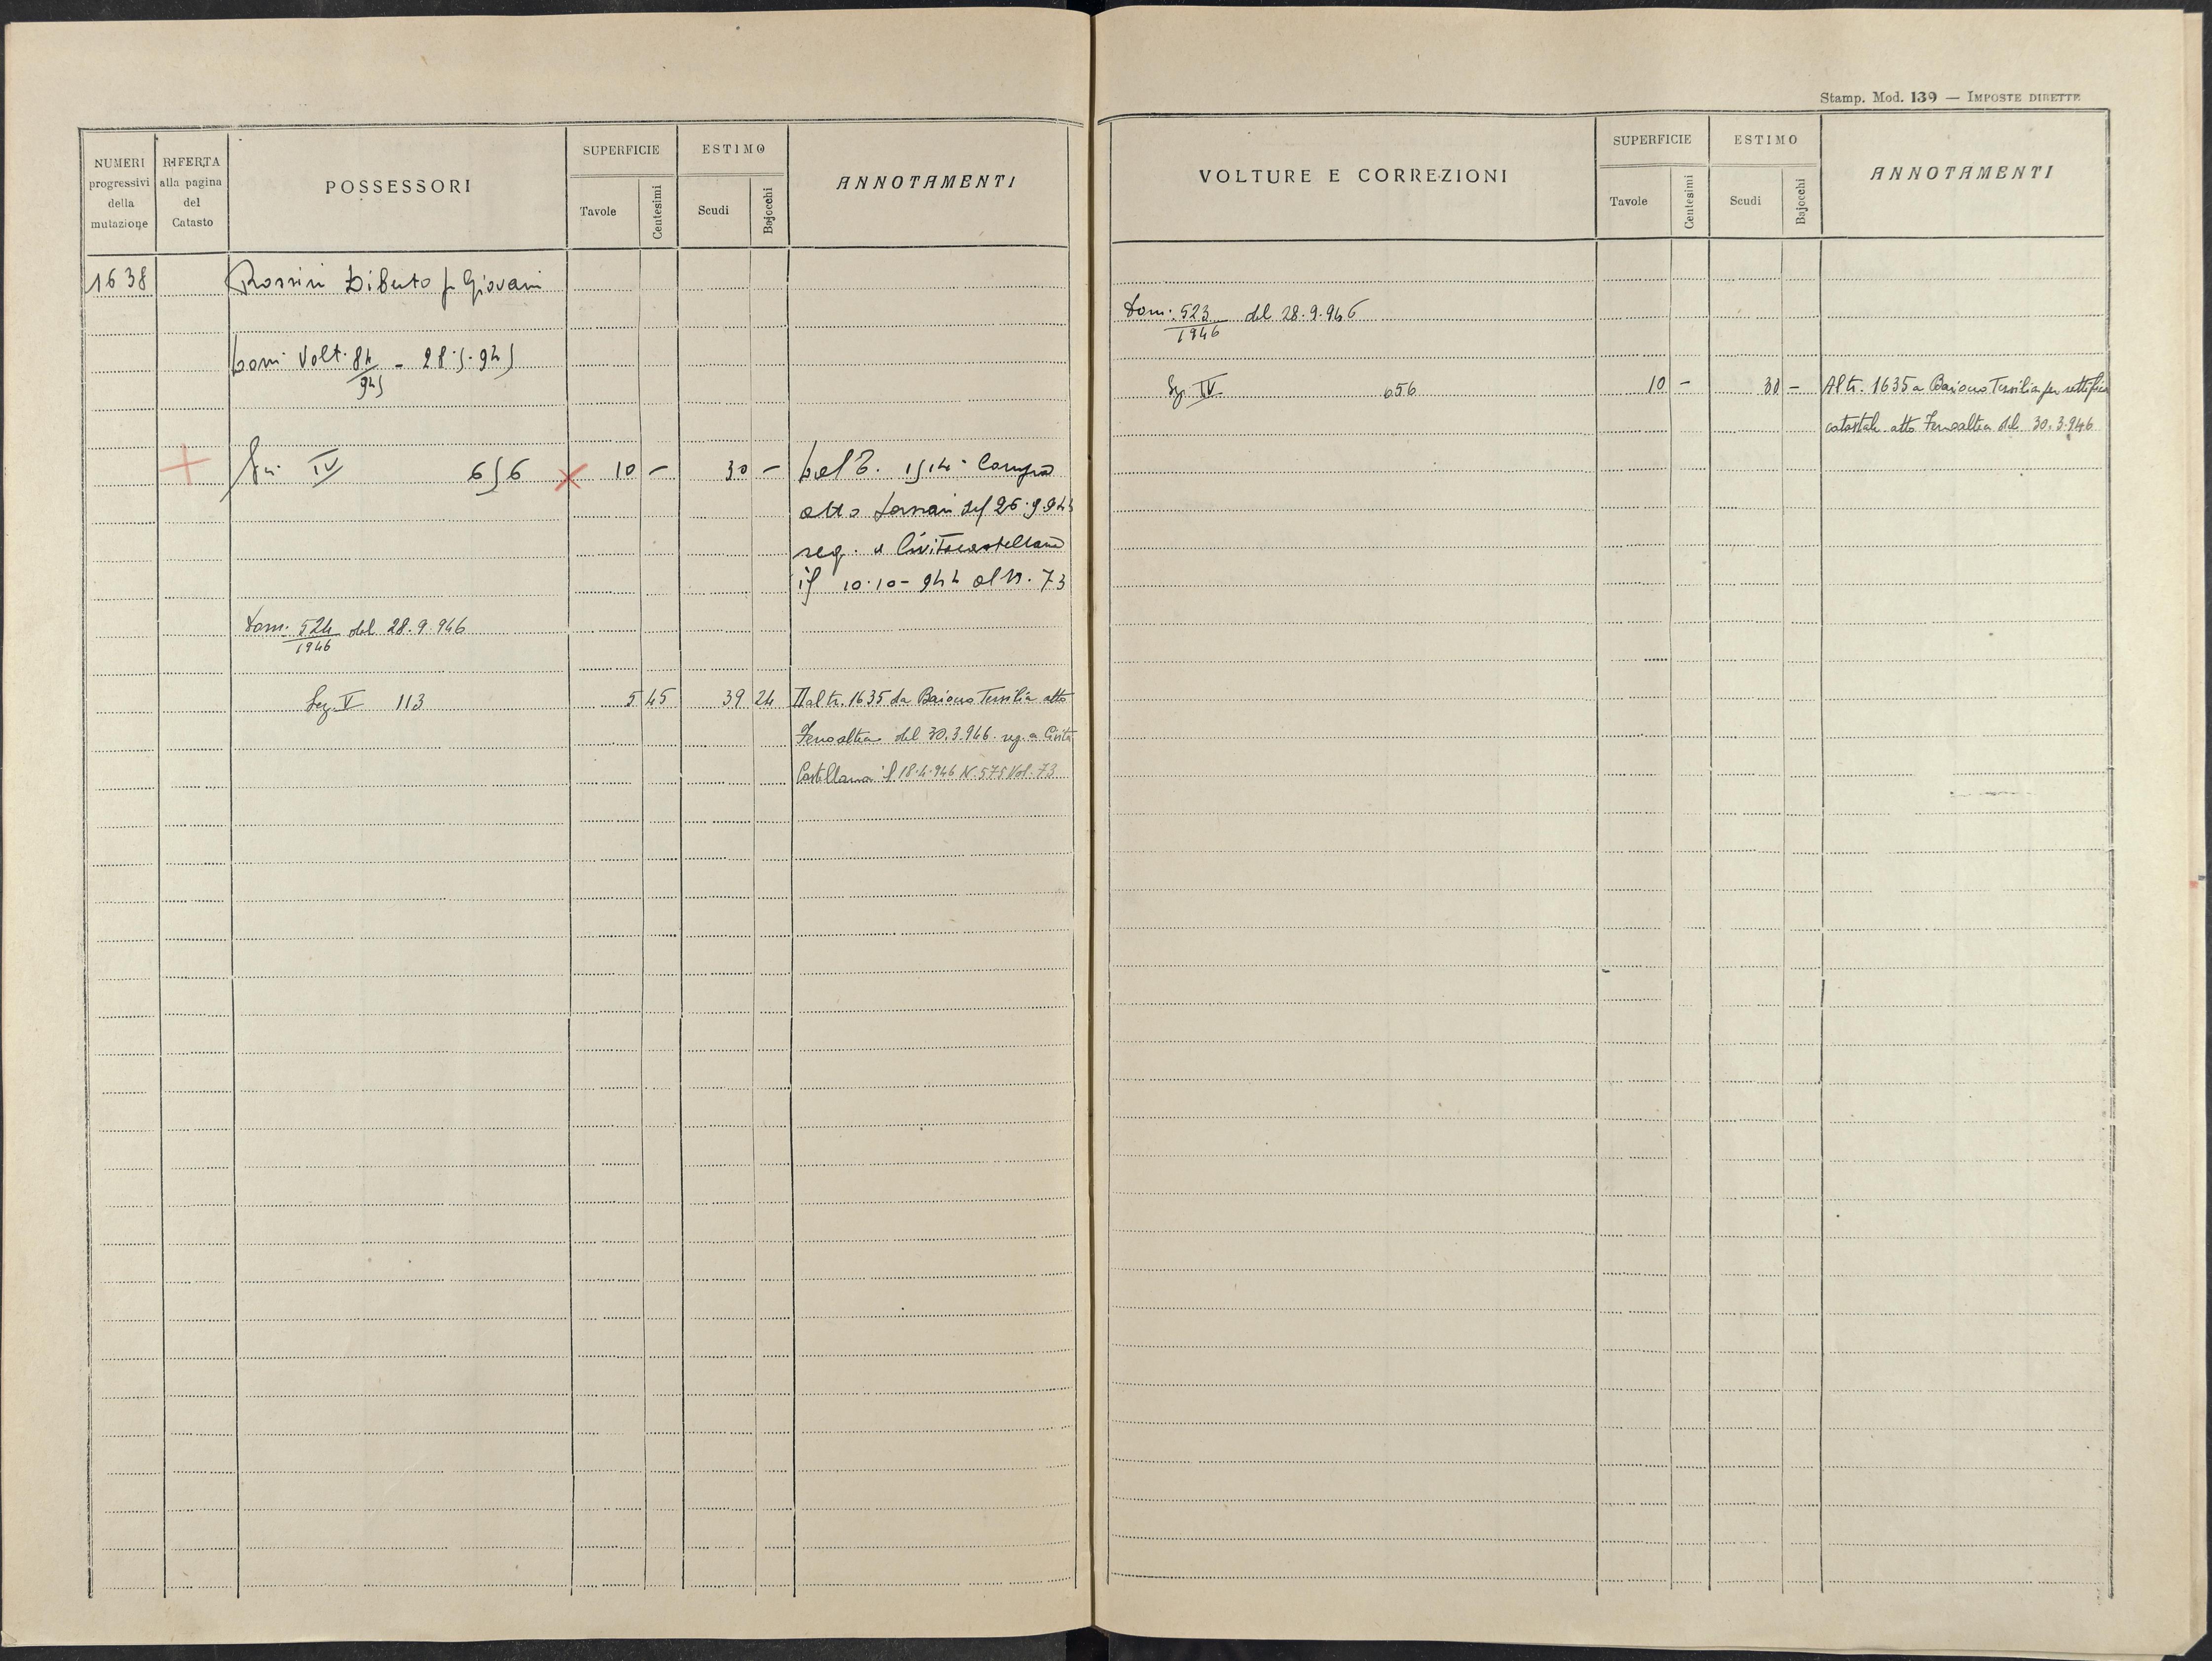 Stamp. Mod. 139 — IMPOSTE DIRETTE
NUMERI progressivi della mutazione
RIFERTA alla pagina del Catasto
POSSESSORI
SUPERFICIE
Tavole
Centesimi
ESTIMO
Scudi
Bajocchi
ANNOTAMENTI
1638 Rossini Diberto fu Giovani
Volt. 84/945 - 28.5.945
IV 656 10 - 30 - Dal T. 1514 Compra
atto del 26.9.944
reg. a Civitacastellana
il 10.10-944 al N. 73
Dom. 524/1946 del 28.9.946
Sez V 113 5 45 39 24 Dal tr. 1635 da Baiocco Tersilia atto
del 30.3.946 reg. a Civita
Castellana il 18.4.946 N. 575 Vol. 73
VOLTURE E CORREZIONI
SUPERFICIE
Tavole
Centesimi
ESTIMO
Scudi
Bajocchi
ANNOTAMENTI
Dom. 523/1946 del 28.9.946
Sez IV 656 10 - 30 - Al tr. 1635 a Baiocco Tersilia per rettifica
catastale atto del 30.3.946